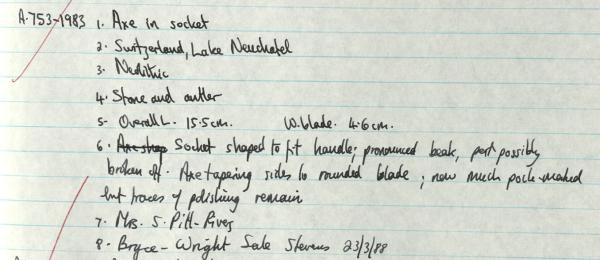 A.753-1983 1. Axe in socket
2. Switzerland, Lake Neuchatel
3. Neolithic
4. Stone and antler
5- Overall L. 15.5cm. W. blade. 4.6cm.
6. Axe shap Socket shaped to fit handle; pronounced beak, part possibly
broken off. Axe tapering sides to rounded blade; now much pock-marked
but traces of polishing remain
7. Mrs. S. Pitt-Rivers
8. Bryce-Wright Sale Stevens 23/3/88